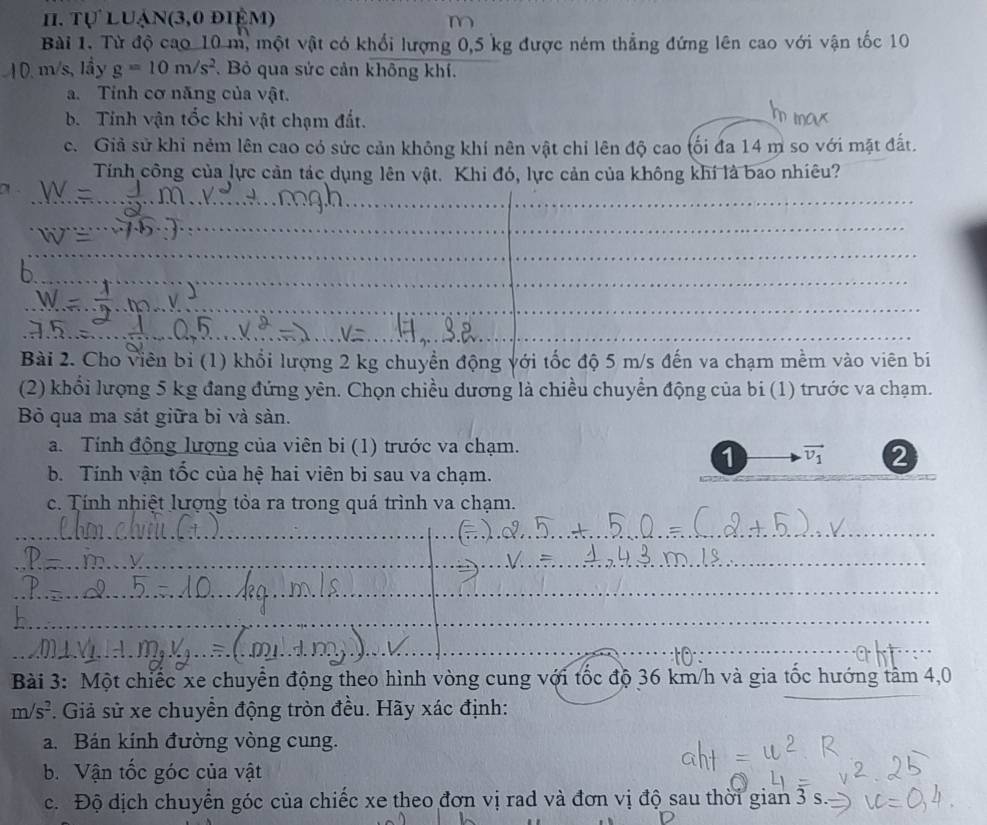 II. TỰ LUẬN(3,0 ĐIỂM)
m
h
Bài 1. Từ độ cao 10 m, một vật có khối lượng 0,5 kg được ném thẳng đứng lên cao với vận tốc 10
10. m/s, lấy g = 10 m/s². Bỏ qua sức cản không khí.
a. Tính cơ năng của vật.
b. Tính vận tốc khi vật chạm đất.
h max
c. Giả sử khi ném lên cao có sức cản không khí nên vật chỉ lên độ cao tối đa 14 m so với mặt đất.
Tính công của lực cản tác dụng lên vật. Khi đó, lực cản của không khí là bao nhiêu?
a. W = 1/2 m v² + mgh
W = 75 J
b.
W = 1/2 m v²
75 = 1/2 0,5 v² => v = 17,32
Bài 2. Cho viên bi (1) khối lượng 2 kg chuyển động với tốc độ 5 m/s đến va chạm mềm vào viên bi
(2) khối lượng 5 kg đang đứng yên. Chọn chiều dương là chiều chuyển động của bi (1) trước va chạm.
Bỏ qua ma sát giữa bi và sàn.
a. Tính động lượng của viên bi (1) trước va chạm.
1 v₁ 2
b. Tính vận tốc của hệ hai viên bi sau va chạm.
c. Tính nhiệt lượng tỏa ra trong quá trình va chạm.
Chọn chiều (+)
P = m v
P = 2 5 = 10 kg m/s
b.
m1 v1 + m2 v2 = (m1 + m2) v
(=) 2.5 + 5.0 = (2+5).v
=> v = 1,43 m/s
10
aht
Bài 3: Một chiếc xe chuyển động theo hình vòng cung với tốc độ 36 km/h và gia tốc hướng tâm 4,0
m/s². Giả sử xe chuyển động tròn đều. Hãy xác định:
a. Bán kính đường vòng cung.
aht = w² R
b. Vận tốc góc của vật
4 = v². 25
c. Độ dịch chuyển góc của chiếc xe theo đơn vị rad và đơn vị độ sau thời gian 3 s.
=> w = 0,4